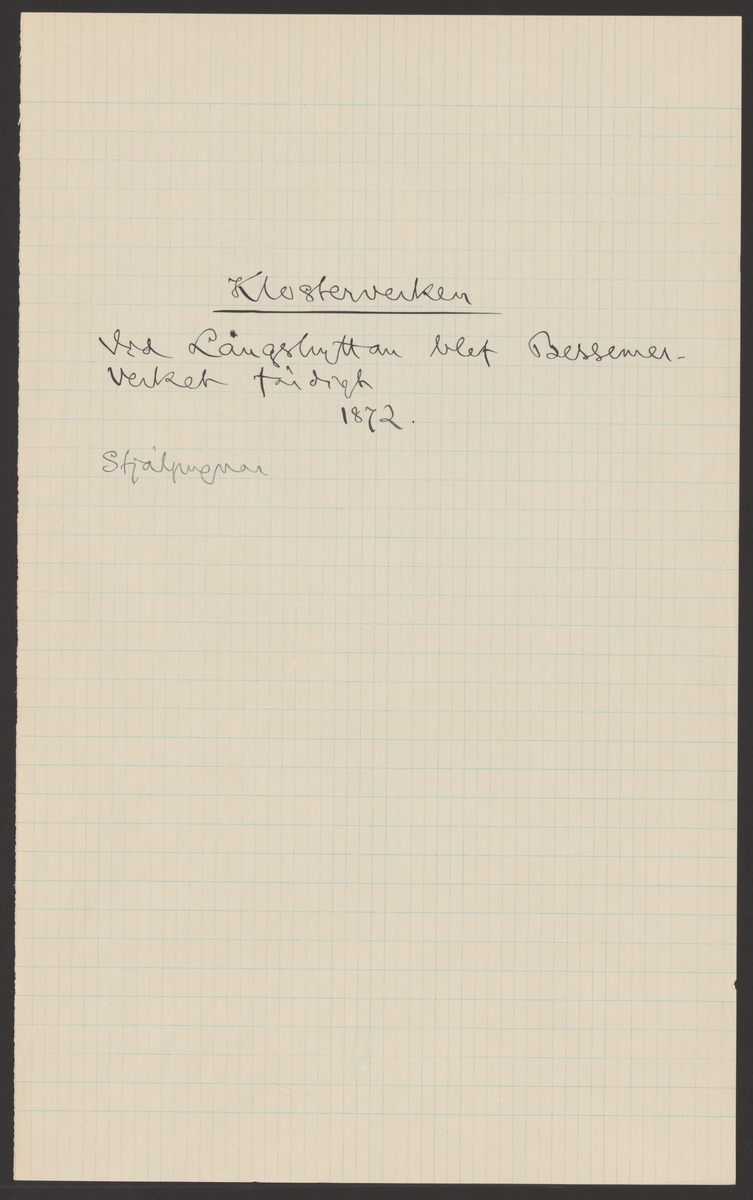 Klosterverken
Vid Långshyttan blef Bessemer-
verket färdigt
1872.
Stjälpugnar